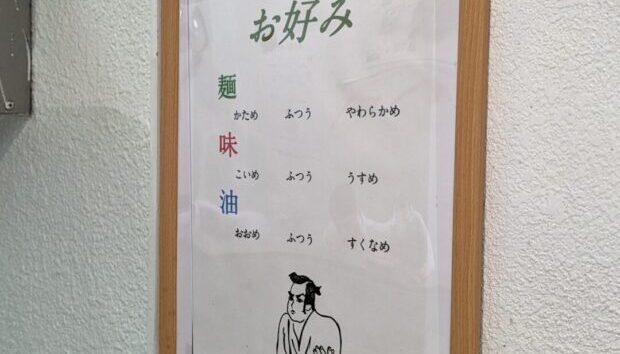 お好み
麺
かため ふつう やわらかめ
味
こいめ ふつう うすめ
油
おおめ ふつう すくなめ